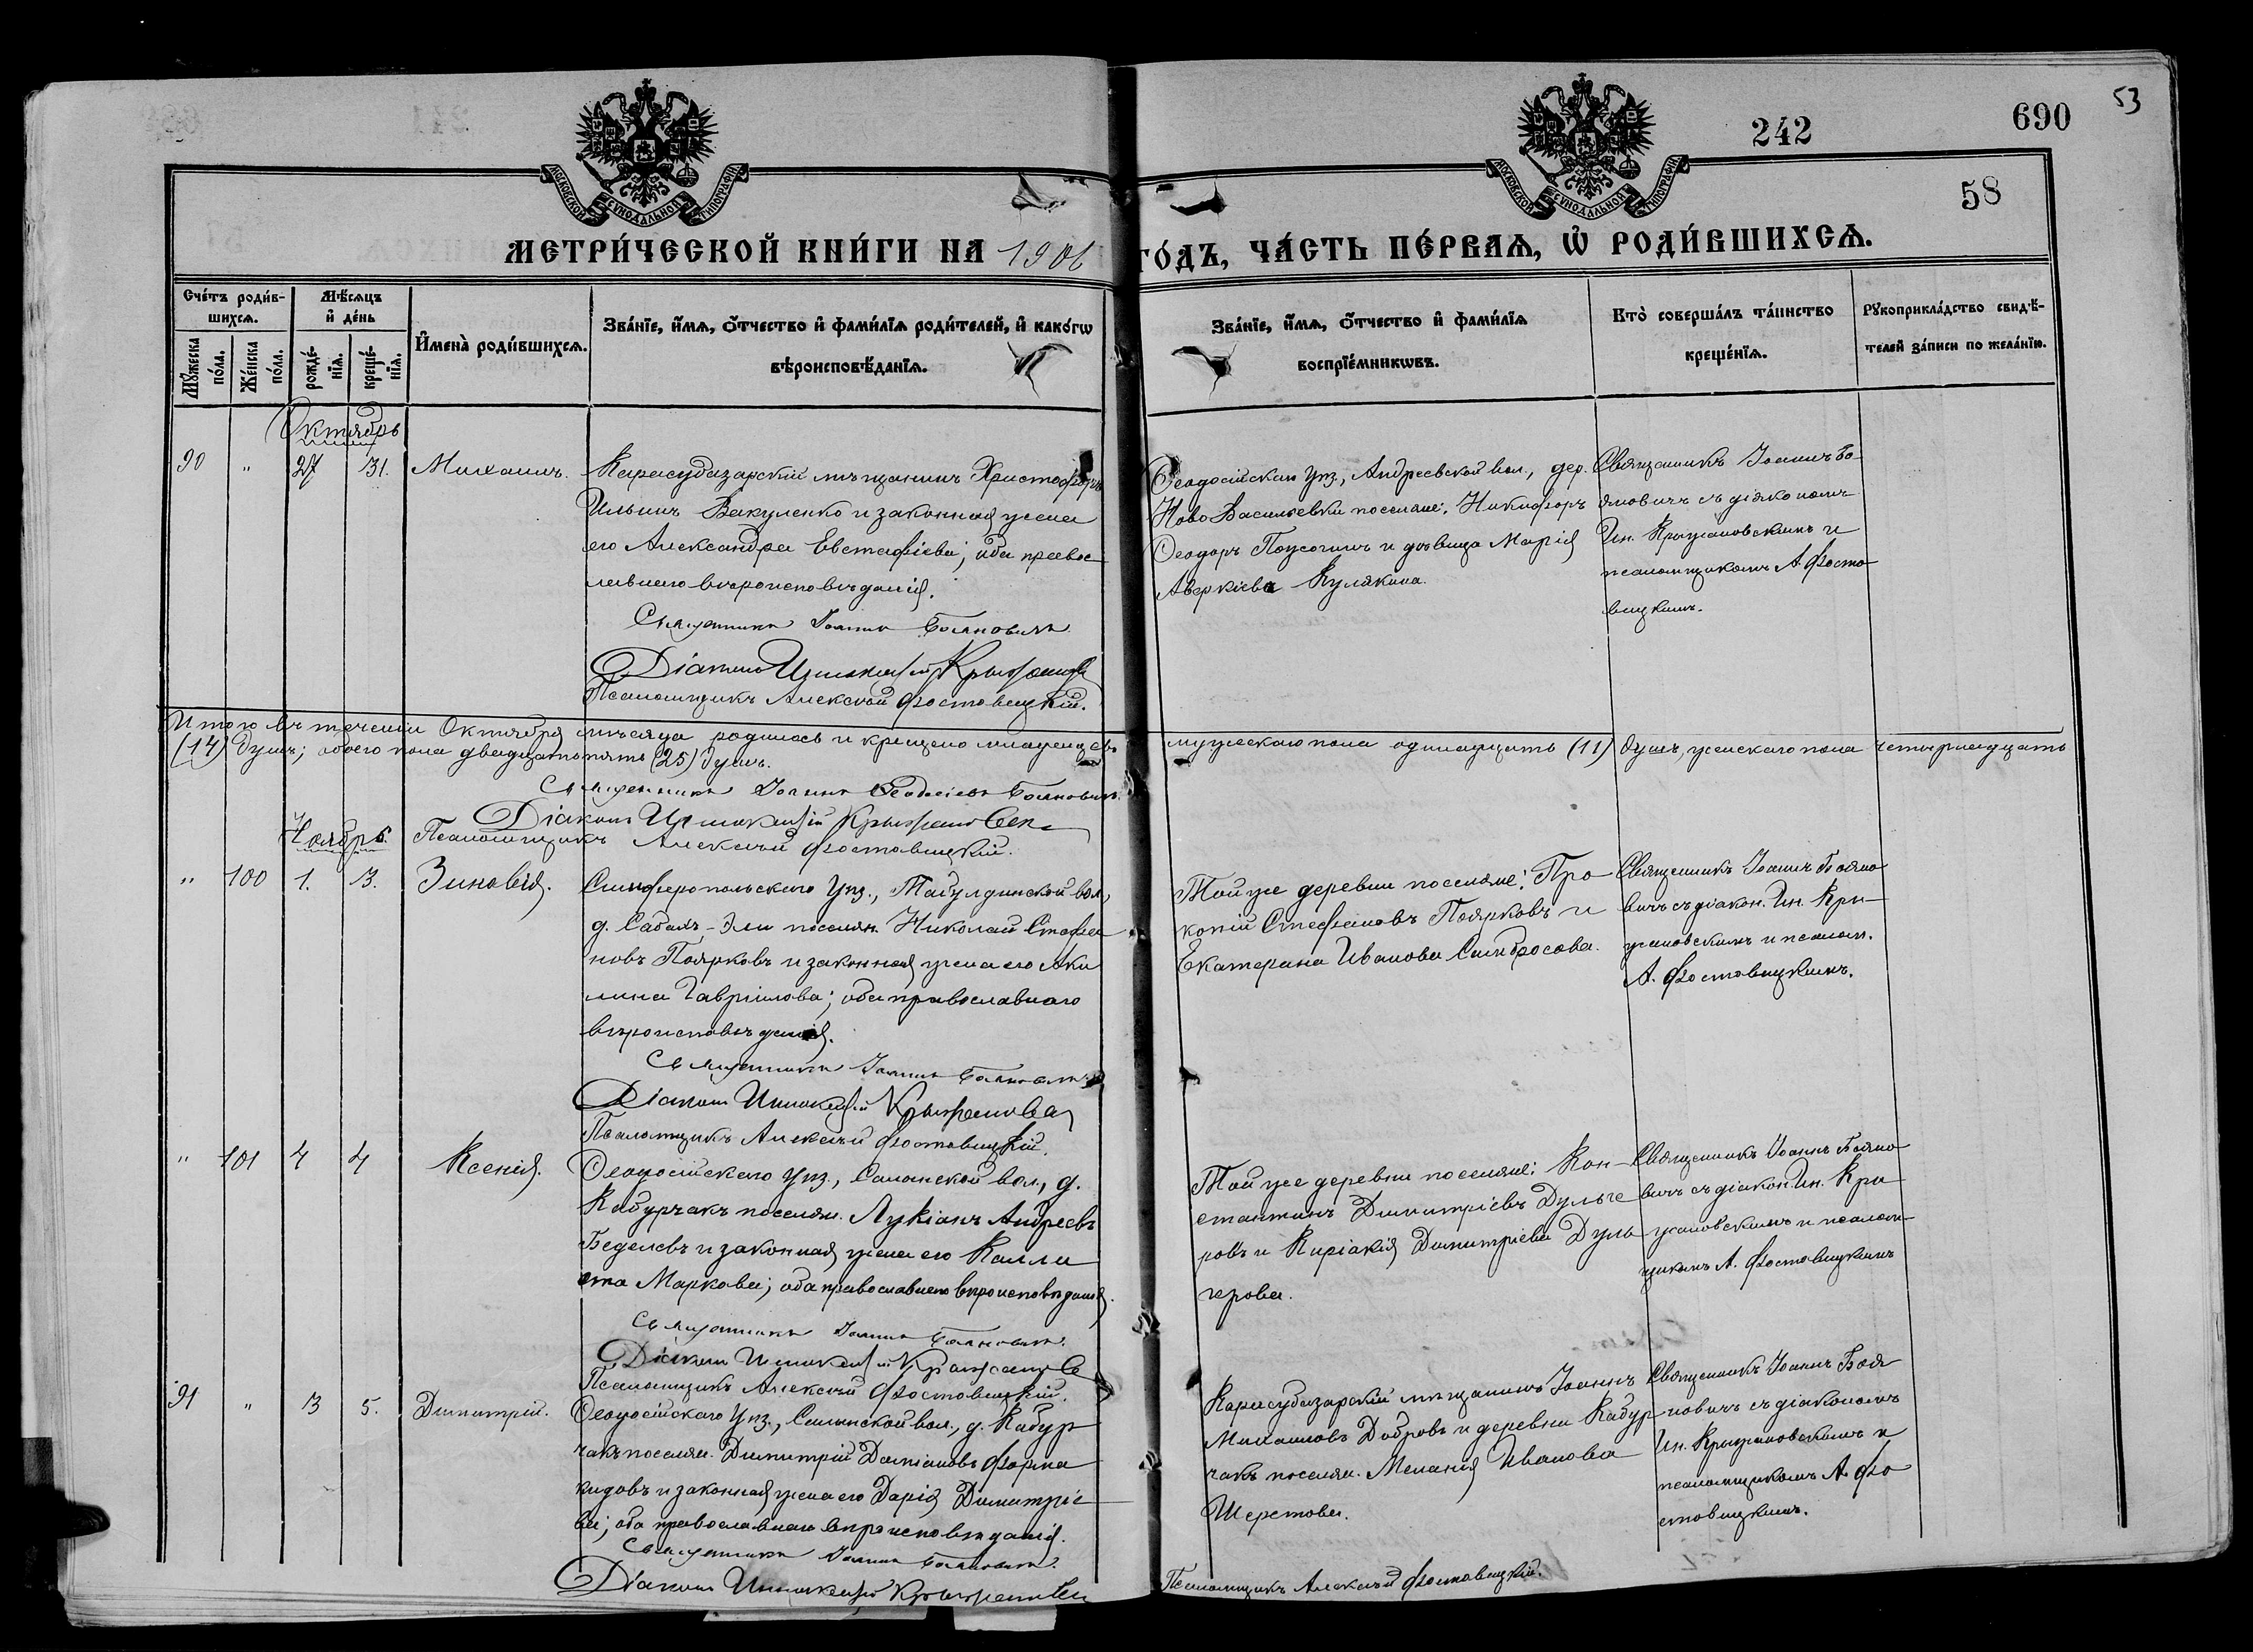 53
690
242
58
МОСКОВСКОЙ СУНОДАЛЬНОЙ ТИПОГРАФІИ
МОСКОВСКОЙ СУНОДАЛЬНОЙ ТИПОГРАФІИ
МЕТРИ́ЧЕСКОЙ КНИ́ГИ НА 1906 ГО́ДЪ, ЧА́СТЬ ПЕ́РВАѦ, Ѡ҆ РОДИ́ВШИХСѦ.
Сче́тъ роди́в-
шихсѧ.
Мѣ́сѧцъ
и҆ де́нь
Мꙋ́жеска по́ла.
Же́нска по́ла.
рожде́-нїѧ.
креще́-нїѧ.
И҆мена̀ роди́вшихсѧ.
Зва́нїе, и҆́мѧ, ѻ҆́тчество и҆ фами́лїѧ роди́телей, и҆ како́гѡ
вѣроисповѣ́данїѧ.
Зва́нїе, и҆́мѧ, ѻ҆́тчество и҆ фами́лїѧ
воспрїе́мникѡвъ.
Кто̀ соверша́лъ та́инство
креще́нїѧ.
Рꙋкоприкла́дство свидѣ́-
телей за́писи по жела́нїю.
Октябрь
90 " 27 31. Михаилъ.
Карасубазарскій мѣщанинъ Христофоръ
Ильинъ Вакуленко и законная жена
его Александра Евстафіева; оба правос
лавнаго вѣроисповѣданія.
Священникъ Іоаннъ Бояновичъ
Діаконъ Иннокентій Крыжановскій
Псаломщикъ Алексѣй Фостовицкій.
Феодосійскаго уѣз., Андреевской вол., дер.
Ново Васильевки поселяне: Никифоръ
Феодоръ и дѣвица Марія
Аверкіева Кулякина.
Священникъ Іоаннъ Бо-
яновичъ съ діакономъ
Ин. Крыжановскимъ и
псаломщикомъ А. Фосто-
вицкимъ.
Итого въ теченіи Октября мѣсяца родилось и крещено младенцевъ мужескаго пола одинадцать (11) душъ, женскаго пола четырнадцать
(14) душъ; обоего пола двадцать пять (25) душъ.
Священникъ Іоаннъ Феодосіевъ Бояновичъ.
Діаконъ Иннокентій Крыжановскій
Псаломщикъ Алексѣй Фостовицкій.
Ноябрь.
" 100 1. 3. Зиновія.
Симферопольскаго уѣз., Табулдинской вол.,
д. Сабахъ-Эли поселян. Николай Стефа
новъ Поярковъ и законная жена его Аки
лина Гавріилова; оба православнаго
вѣроисповѣданія.
Священникъ Іоаннъ Бояновичъ
Діаконъ Иннокентій Крыжановскій
Псаломщикъ Алексѣй Фостовицкій.
Той же деревни поселяне: Про-
копій Стефановъ Поярковъ и
Екатерина Иванова Самбросова.
Священникъ Іоаннъ Бояно
вичъ съ діакон. Ин. Кры-
жановскимъ и псалом.
А. Фостовицкимъ.
" 101 4 4 Ксенія.
Феодосійскаго уѣз., Салынской вол., д.
Кабурчакъ поселян. Лукіанъ Андреевъ
Беделевъ и законная жена его Калли
ста Маркова; оба православнаго вѣроисповѣданія.
Священникъ Іоаннъ Бояновичъ.
Діаконъ Иннокентій Крыжановскій
Псаломщикъ Алексѣй Фостовицкій.
Той же деревни поселяне: Кон-
стантинъ Димитріевъ Дульге
ровъ и Киріакія Димитріева Дуль
герова.
Священникъ Іоаннъ Бояно
вичъ съ діакон. Ин. Кры
жановскимъ и псалом-
щикомъ А. Фостовицкимъ
91 " 3 5. Димитрій.
Феодосійскаго уѣз., Салынской вол., д. Кабур
чакъ поселян. Димитрій Даміановъ Форма
кидовъ и законная жена его Дарія Димитріе
ва; оба православнаго вѣроисповѣданія.
Священникъ Іоаннъ Бояновичъ.
Діаконъ Иннокентій Крыжановскій
Карасубазарскій мѣщанинъ Іоаннъ
Михаиловъ Добровъ и деревни Кабур
чакъ поселян. Меланія Иванова
Шерстова.
Священникъ Іоаннъ Боя
новичъ съ діакономъ
Ин. Крыжановскимъ и
псаломщикомъ А. Фо
стовицкимъ.
Псаломщикъ Алексѣй Фостовицкій.